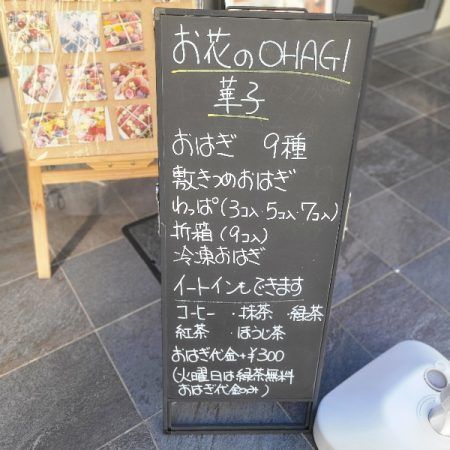 お花のOHAGI
華子
おはぎ 9種
敷きつめおはぎ
わっぱ(3コ入・5コ入・7コ入)
折箱(9コ入)
冷凍おはぎ
イートインもできます
コーヒー・抹茶・緑茶
紅茶・ほうじ茶
おはぎ代金+¥300
(火曜日は緑茶無料
おはぎ代金のみ)